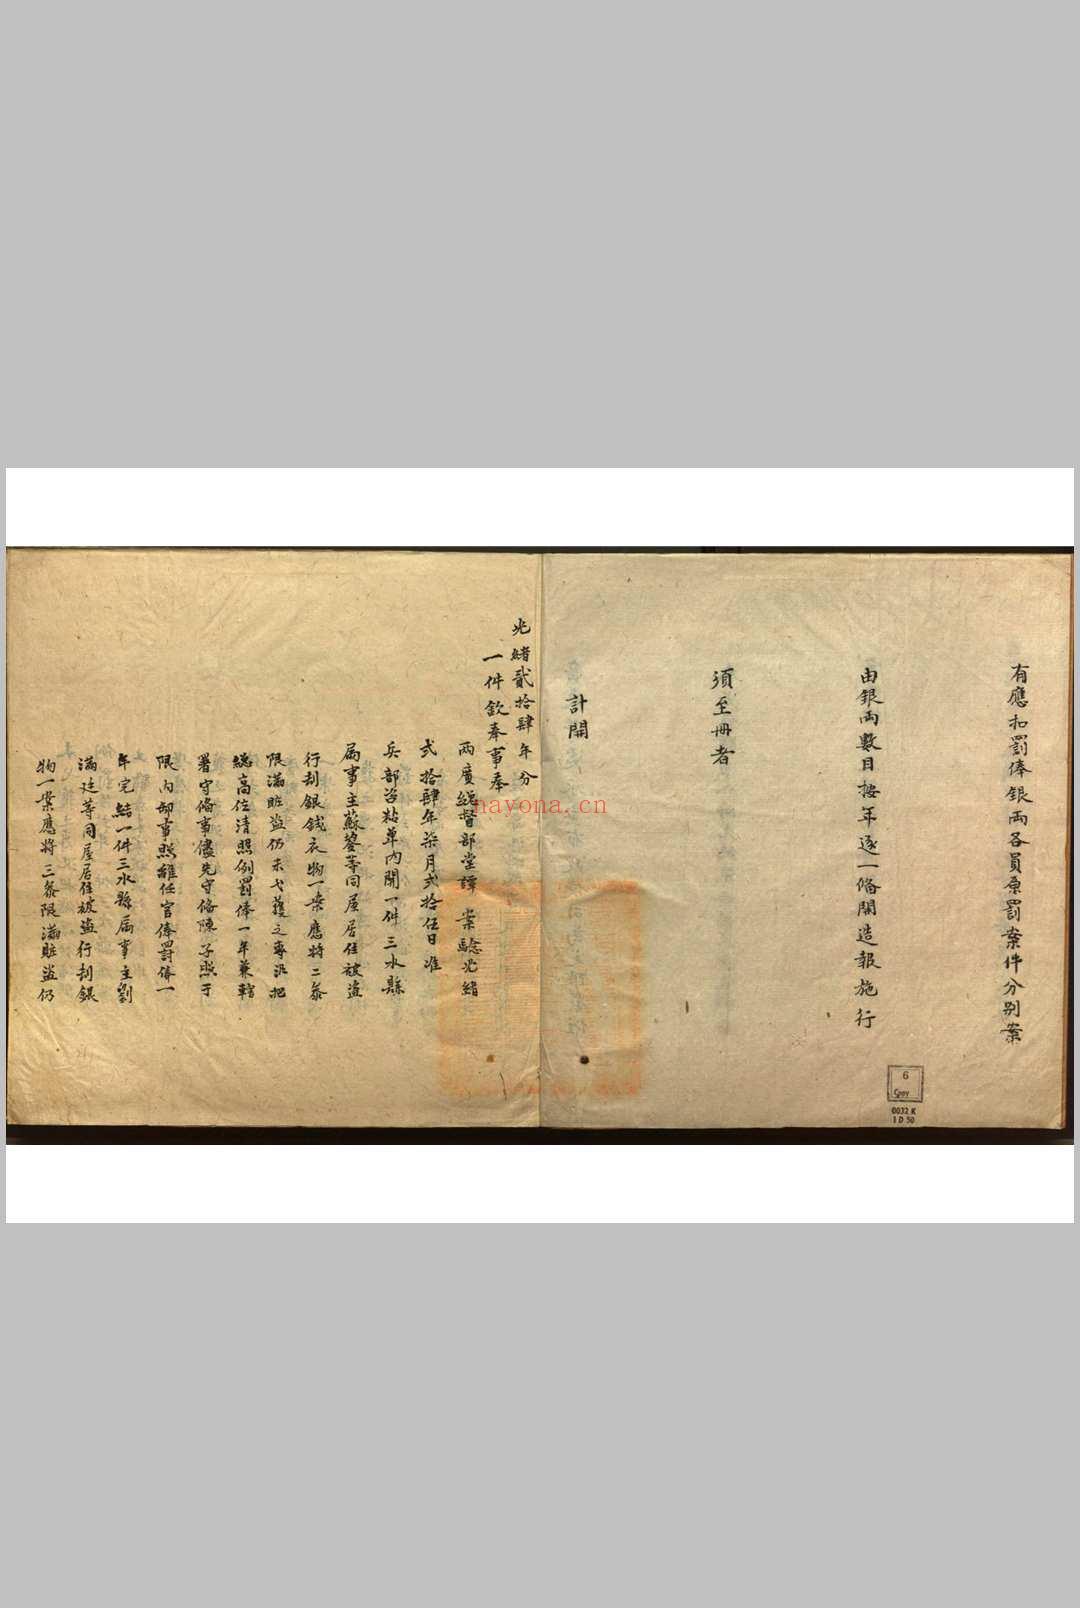 有應扣罰俸銀兩各員原罰案件分別案
由銀兩數目按年逐一條開造報施行
須至冊者
計開
光緒貳拾肆年分
一件欽奉事奉
兩廣總督部堂譚 案驗光緒
弍拾肆年柒月弍拾伍日准
兵部咨粘單內開一件三水縣
屬事主蘇鎣等同屋居住被盜
行刮銀錢衣物一案應將二叅
限滿賍盜仍未弋獲之專汛把
總高位清照例罰俸一年兼轄
署守條事儘先守條陳子照于
限內卸事照離任官俸罰俸一
年完結一件三水縣屬事主劉
滿廷等同屋居住被盜行刮銀
物一案應將三叅限滿賍盜仍
nayona.cn
6
Cpoy
0032 K
1 D 50